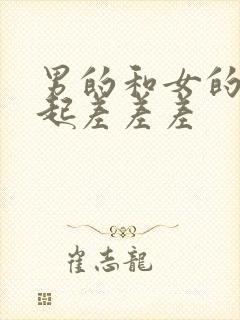 男的和女的
起差差差
崔志龍